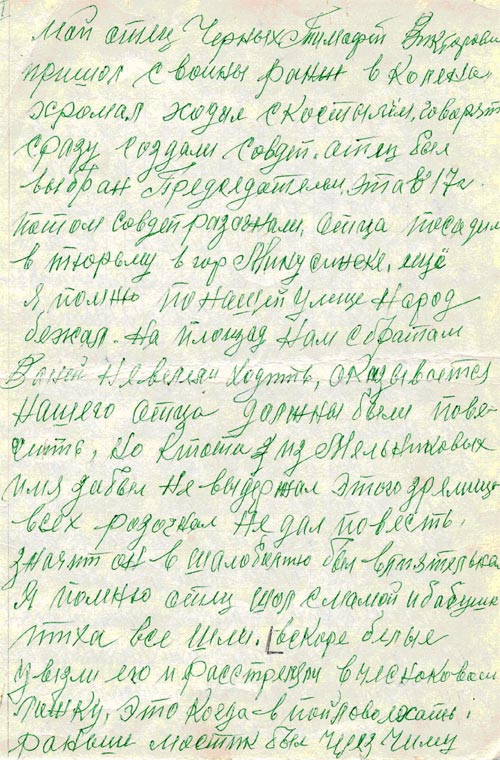 I
Май отец Черных Тимафей Викторови
пришол с воины ранн в колена,
хромал ходил с костылём, говарят
сразу создали совдеп. отец был
выбран Председателем, эта в 17г.
потом совдеп разагнали, отца посадил
в тюрьму в гор Минусинске, ещё
я помню по нашей улице Народ
бежал. на площад нам с братам
Ваней не велели ходить, оказывается
нашего отца должны были пове-
сить, но ктота из Мельниковых
имя забыл не выдержал этого зрелища
всех разогнал не дал повесть.
значит он в шалоболтю был влиятельнай
Я помню отец шол с мамой и бабушке
тиха все шли. вскоре белые
увезли его и расстреляли в чесноковам
ложку, это когда в пойлово ехать.
раньше мостик был через Чиму